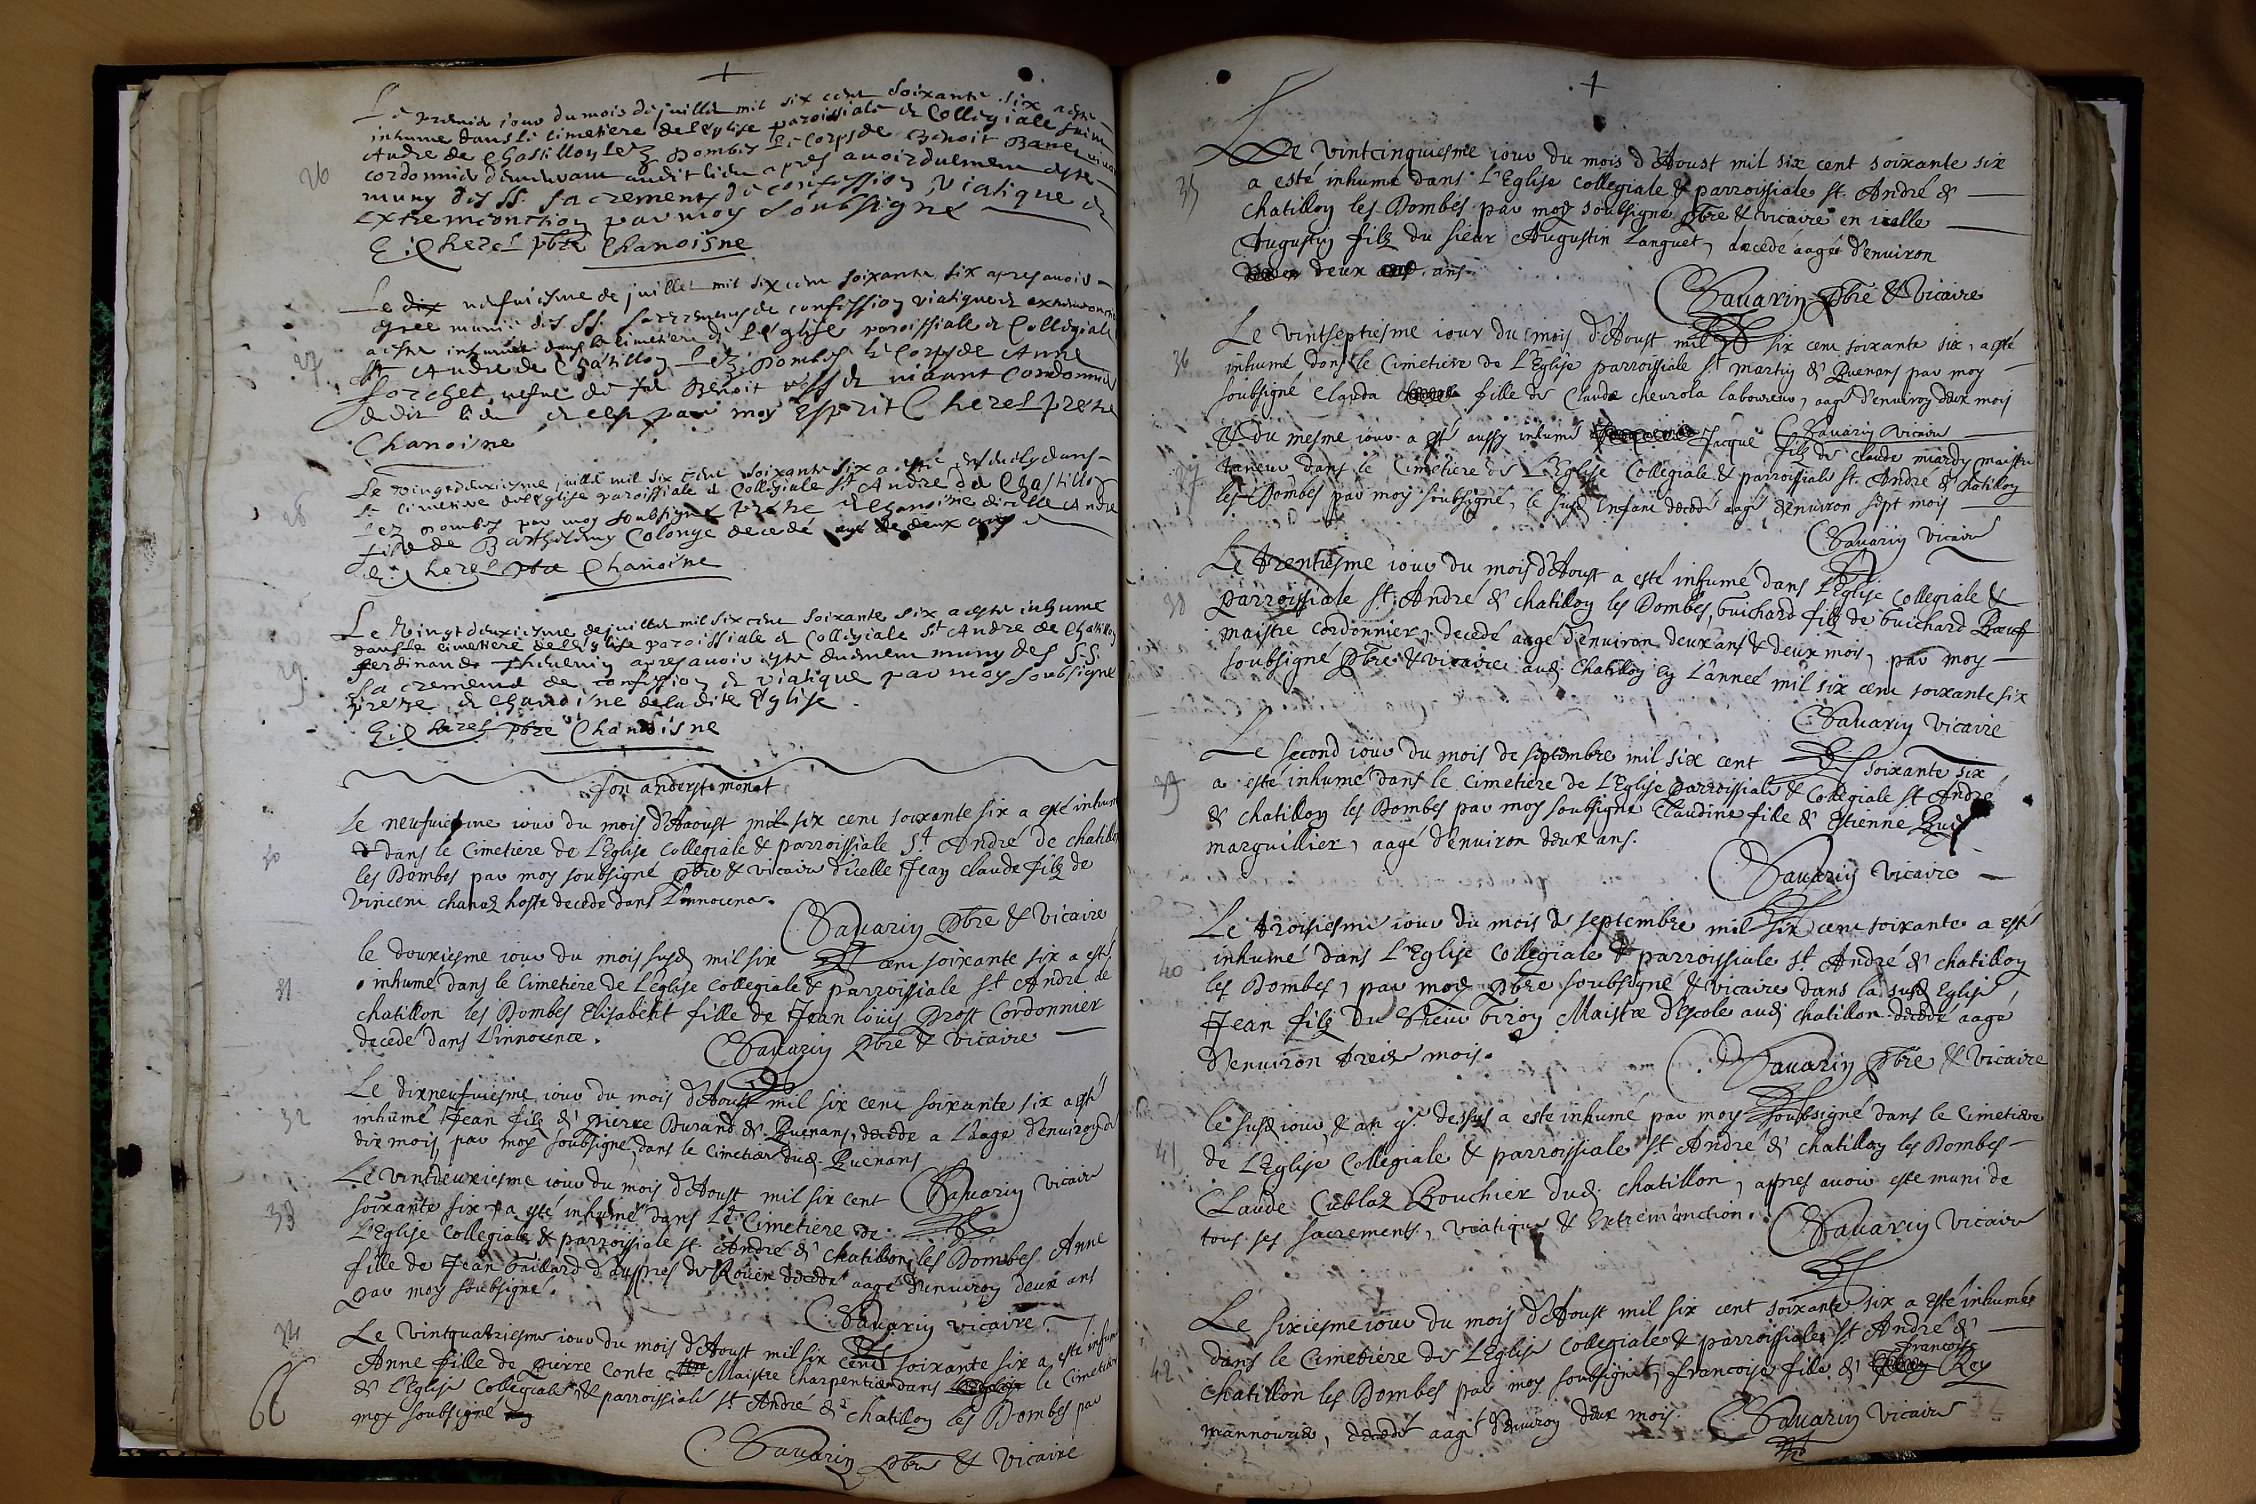 Le premier jour du mois de juillet mil six cent soixante six a esté
inhumé dans le cimetiere de l'eglise paroissiale et Collegiale sainct
Andre de Chastillon lez Dombes le corps de Benoit
cordonnier demeurant audit lieu apres avoir duement esté
muny des SS. sacrements de confession, viatique et
extremonction par moy soubsigné
E. Cherel pbre Chanoisne
26
Le dix neufuiesme de juillet mil six cent soixante six apres avoir
esté munie des SS. sacrements de confession viatique et extremonction
a esté inhumée dans le cimetiere de l'eglise paroissiale et Collegiale
St Andre de Chatillon lez Dombes le corps de Anne
Sorchet vefve de feu Benoit vivant Cordonnier
dudit lieu par moy Esperit Cherel prestre
Chanoisne
27
Le vingt deuxiesme juillet mil six cent soixante six a esté dans
le cimetiere de l'eglise paroissiale et Collegiale St Andre de Chastillon
lez Dombes par moy soubsigné prestre et chanoine d'icelle Andre
filz de Barthelemy Colonge decedé aagé de deux ans
E. Cherel pbre Chanoisne
28
Le vingt deuxiesme de juillet mil six cent soixante six a esté inhumé
dans le cimetiere de l'eglise paroissiale et Collegiale St Andre de Chatillon
ferdinande apres avoir esté duement muny des SS.
sacrements de confession et viatique par moy soubsigné
prestre et chanoisne de la dite Eglise
E. Cherel pbre Chanoisne
29
Le neufuiesme iour du mois d'Aoust mil six cent soixante six a esté inhumé
dans le Cimetiere de L'Eglise Collegiale & parroissiale St André de chatillon
les Dombes par moy soubsigné pbre & vicaire d'icelle Jean Claude filz de
Vincent chanaz hoste decedé dans L'innocence.
30
Savarin pbre & vicaire
le douxiesme iour du mois susd mil six cent soixante six a esté
inhumé dans le Cimetiere de L'Eglise Collegiale & parroissiale St André de
chatillon les Dombes Elisabeth fille de Jean louis Prost Cordonnier
decedé dans L'innocence.
31
Savarin pbre & vicaire
Le dixneufuiesme iour du mois d'Aoust mil six cent soixante six a esté
inhumé Jean filz de Pierre Durand de Buenans, decedé a L'aage d'environ
dix mois, par moy soubsigné, dans le Cimetiere dud. Buenans
32
Savarin vicaire
Le vintdeuxiesme iour du mois d'Aoust mil six cent
soixante six, a esté inhumé dans Le Cimetiere de
L'Eglise Collegiale & parroissiale St. André de chatillon les Dombes Anne
fille de Jean Gaillard decedé aagé d'environ deux ans
par moy soubsigné.
33
Savarin vicaire
Le vintquatriesme iour du mois d'Aoust mil six cent soixante six a esté inhumé
Anne fille de Pierre Conte Maistre Charpentier dans le Cimetiere
de L'Eglise Collegiale & parroissiale St André de chatillon les Dombes par
moy soubsigné
34
Savarin pbre & vicaire
Le vintcinquiesme iour du mois d'Aoust mil six cent soixante six
a esté inhumé dans L'Eglise Collegiale & parroissiale St. André de
chatillon les Dombes par moy soubsigné pbre & vicaire en icelle
Augustin filz du sieur Augustin Languet, decedé aagé d'environ
deux ans.
35
Savarin pbre & vicaire
Le vintseptiesme iour du mois d'Aoust mil six cent soixante six, a esté
inhumé, dans le Cimetiere de L'Eglise parroissiale St martin de Buenans par moy
soubsigné Clauda fille de Claude chevrola laboureur, aagé d'environ deux mois
36
Savarin vicaire
& du mesme iour a esté aussy inhumé Jacque filz de claude miardy maistre
taneur dans le Cimetiere de L'Eglise Collegiale & parroissiale St. André de chatillon
les Dombes par moy soubsigné, le susd Enfant decedé aagé d'environ sept mois
37
Savarin vicaire
Le trentiesme iour du mois d'Aoust a esté inhumé dans L'Eglise Collegiale &
parroissiale St. André de chatillon les Dombes, Guichard filz de Guichard Boeuff
maistre Cordonnier, decedé aagé d'environ deux ans & deux mois, par moy
soubsigné pbre & vicaire aud. Chatillon En L'année mil six cent soixante six
38
Savarin vicaire
Le second iour du mois de septembre mil six cent soixante six
a esté inhumé dans le Cimetiere de L'Eglise parroissiale & Collegiale St André
de chatillon les Dombes par moy soubsigné Claudine fille de Estienne
marguillier, aagé d'environ deux ans.
39
Savarin vicaire
Le troisiesme iour du mois de septembre mil six cent soixante a esté
inhumé dans L'Eglise Collegiale & parroissiale St. André de chatillon
les Dombes, par moy pbre soubsigné & vicaire dans la susd Eglise,
Jean filz du Sieur Giron Maistre d'Escole aud. chatillon decedé aagé
d'environ treize mois.
40
Savarin pbre & vicaire
le susd iour, & an q. dessus a esté inhumé par moy soubsigné dans le Cimetiere
de L'Eglise Collegiale & parroissiale St. André de chatillon les Dombes
Claude Cublaz Bouchier dud. chatillon, apres avoir esté muni de
tous ses sacrements, viatique & Extremonction.
41
Savarin vicaire
Le sixiesme iour du mois d'Aoust mil six cent soixante six a esté inhumée
dans le Cimetiere de L'Eglise Collegiale & parroissiale St André de
chatillon les Dombes par moy soubsigné, francoise fille de francois Rey
mannouvrier, decedé aagé d'environ deux mois
42.
Savarin vicaire